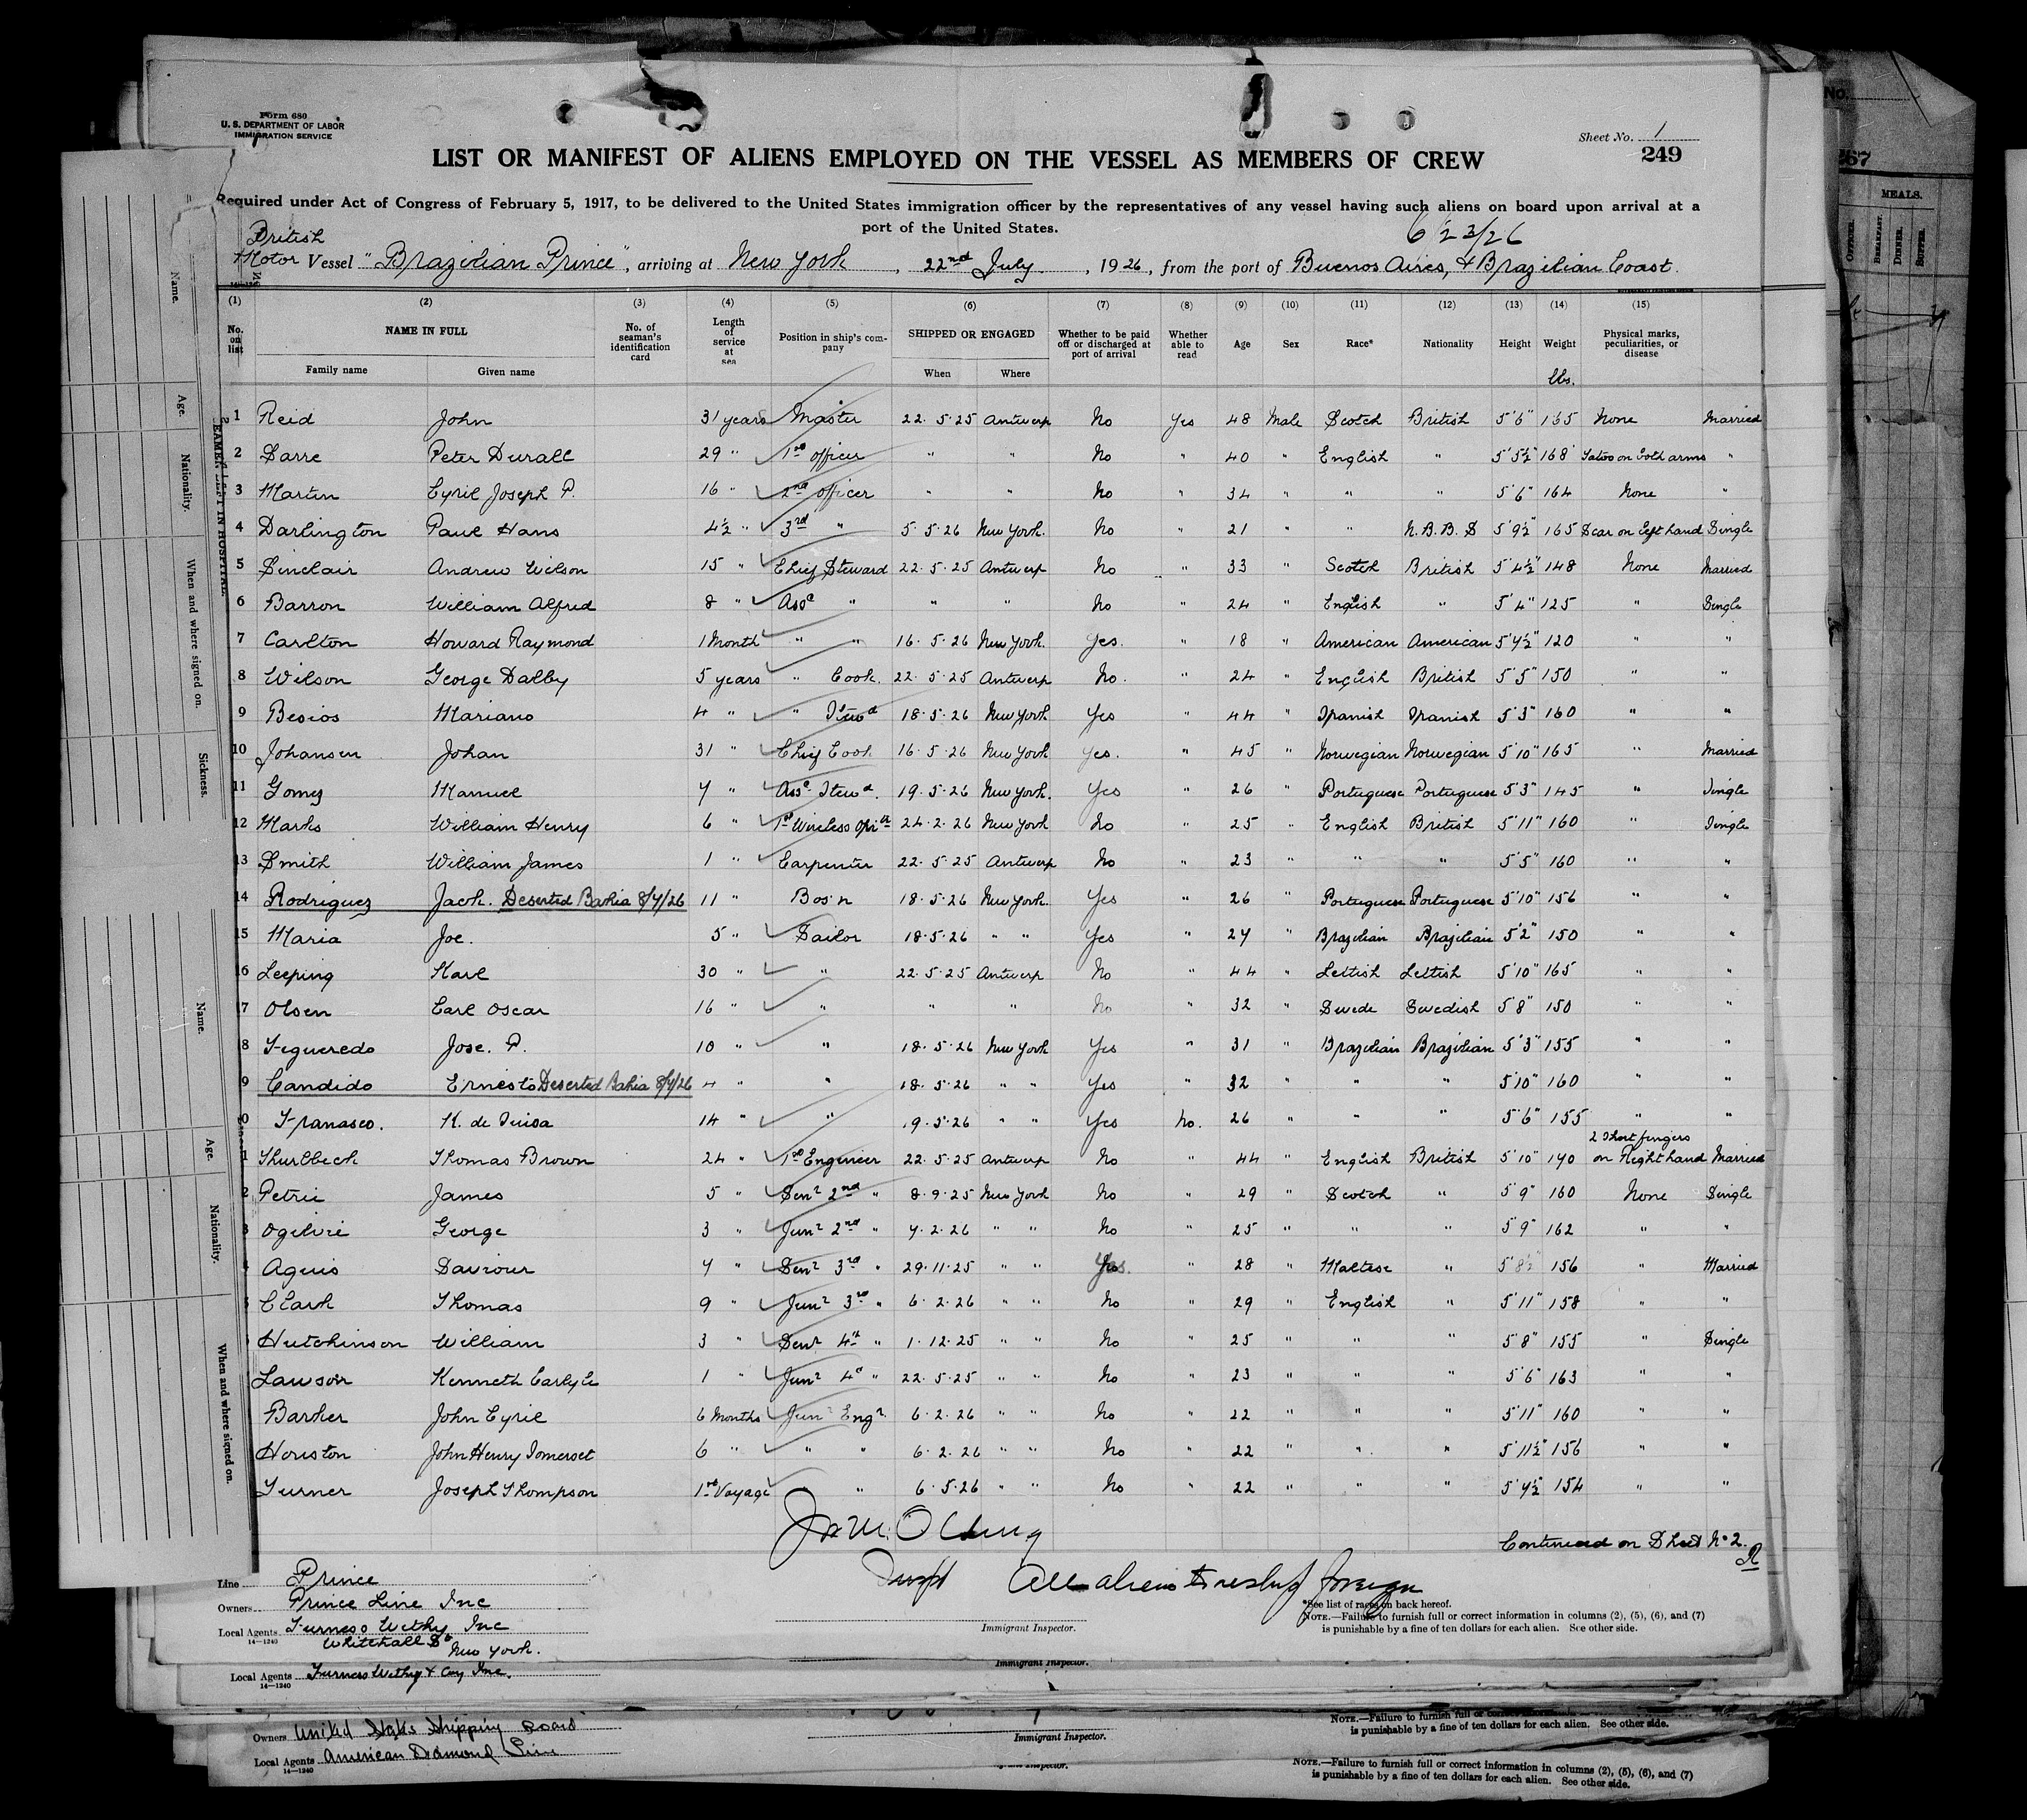 Form 680
U. S. DEPARTMENT OF LABOR
IMMIGRATION SERVICE
Sheet No. 1
249
LIST OR MANIFEST OF ALIENS EMPLOYED ON THE VESSEL AS MEMBERS OF CREW
Required under Act of Congress of February 5, 1917, to be delivered to the United States immigration officer by the representatives of any vessel having such aliens on board upon arrival at a
port of the United States.
British
Motor Vessel "Brazilian Prince", arriving at New York, 22nd July, 1926, from the port of Buenos Aires, & Brazilian Coast.
(1) (2) (3) (4) (5) (6) (7) (8) (9) (10) (11) (12) (13) (14) (15)
No. on list NAME IN FULL No. of seaman's identification card Length of service at sea Position in ship's company SHIPPED OR ENGAGED Whether to be paid off or discharged at port of arrival Whether able to read Age Sex Race* Nationality Height Weight Physical marks, peculiarities, or disease
Family name Given name When Where
lbs.
1 Reid John 31 years Master 22.5.25 Antwerp No Yes 48 Male Scotch British 5'6" 165 None Married
2 Sarre Peter Durall 29 " 1st officer " " No " 40 " English " 5'5½" 168 Tatoo on both arms "
3 Martin Cyril Joseph P. 16 " 2nd officer " " No " 34 " " " 5'6" 164 None "
4 Darlington Paul Hans 4½ " 3rd " 5.5.26 New York. No " 21 " " N.B.B.S 5'9½" 165 Scar on left hand Single
5 Sinclair Andrew Wilson 15 " Chief Steward 22.5.25 Antwerp No " 33 " Scotch British 5'4½" 148 None Married
6 Barron William Alfred 8 " Asst " " " No " 24 " English " 5'4" 125 " Single
7 Carlton Howard Raymond 1 Month " " 16.5.26 New York. Yes. " 18 " American American 5'7½" 120 " "
8 Wilson George Dalby 5 years " Cook. 22.5.25 Antwerp No. " 24 " English British 5'5" 150 " "
9 Besios Mariano 4 " " Stewd 18.5.26 New York Yes " 44 " Spanish Spanish 5'3" 160 " "
10 Johansen Johan 31 " Chief Cook 16.5.26 New York Yes. " 45 " Norwegian Norwegian 5'10" 165 " Married
11 Gomez Manuel 7 " Asst Stewd. 19.5.26 New York. Yes " 26 " Portuguese Portuguese 5'3" 145 " Single
12 Marks William Henry 6 " 1st Wireless Optr 24.2.26 New York No " 25 " English British 5'11" 160 " Single
13 Smith William James 1 " Carpenter 22.5.25 Antwerp No " 23 " " " 5'5" 160 " "
14 Rodriguez Jack. Deserted Bahia 8/7/26 11 " Bos'n 18.5.26 New York. Yes " 26 " Portuguese Portuguese 5'10" 156 " "
15 Maria Joe. 5 " Sailor 18.5.26 " " Yes " 27 " Brazilian Brazilian 5'2" 150 " "
16 Leeping Karl 30 " " 22.5.25 Antwerp No " 44 " Lettish Lettish 5'10" 165 " "
7 Olsen Carl Oscar 16 " " " " No " 32 " Swede Swedish 5'8" 150 " "
8 Figueredo Jose. P. 10 " " 18.5.26 New York Yes " 31 " Brazilian Brazilian 5'3" 155 " "
9 Candido Ernesto Deserted Bahia 8/7/26 4 " " 18.5.26 " " Yes " 32 " " " 5'10" 160 " "
0 K. de 14 " " 19.5.26 " " Yes No. 26 " " " 5'6" 155 " "
1 Thurlbeck Thomas Brown 24 " 1st Engineer 22.5.25 Antwerp No " 44 " English British 5'10" 190 2 Short fingers on Right hand Married
2 Petrie James 5 " Senr 2nd " 8.9.25 New York No " 29 " Scotch " 5'9" 160 None Single
3 Ogilvie George 3 " Junr 2nd " 7.2.26 " " No " 25 " " " 5'9" 162 " "
Aguis Saviour 7 " Senr 3rd " 29.11.25 " " Yes. " 28 " Maltese " 5'8½" 156 " Married
Clark Thomas 9 " Junr 3rd " 6.2.26 " " No " 29 " English " 5'11" 158 " "
Hutchinson William 3 " Senr 4th " 1.12.25 " " No " 25 " " " 5'8" 155 " Single
Lawson Kenneth Carlyle 1 " Junr 4th " 22.5.25 " " No " 23 " " " 5'6" 163 " "
Barker John Cyril 6 Months Junr Engr 6.2.26 " " No " 22 " " " 5'11" 160 " "
Houston John Henry Somerset 6 " " " 6.2.26 " " No " 22 " " " 5'11½" 156 " "
Turner Joseph Thompson 1st Voyage " " 6.5.26 " " No " 22 " " " 5'7½" 154 " "
Continued on Sheet No 2.
Line Prince
Owners Prince Line Inc
Local Agents Furness Withy Inc
14—1240
Whitehall St
New York.
All aliens to reship foreign
Immigrant Inspector.
*See list of races on back hereof.
NOTE.—Failure to furnish full or correct information in columns (2), (5), (6), and (7)
is punishable by a fine of ten dollars for each alien. See other side.
Local Agents Furness Withy & Coy Inc.
14—1240
Immigrant Inspector.
Owners United States Shipping Board
Local Agents American Diamond Line
14—1240
Immigrant Inspector.
NOTE.—Failure to furnish full or correct
is punishable by a fine of ten dollars for each alien. See other side.
NOTE.—Failure to furnish full or correct information in columns (2), (5), (6), and (7)
is punishable by a fine of ten dollars for each alien. See other side.
Name.
Age.
Nationality.
When and where signed on.
Sickness.
Name.
Age.
Nationality.
When and where signed on.
SEAMEN LEFT IN HOSPITAL.
No.
267
MEALS.
OFFICER.
BREAKFAST.
DINNER.
SUPPER.